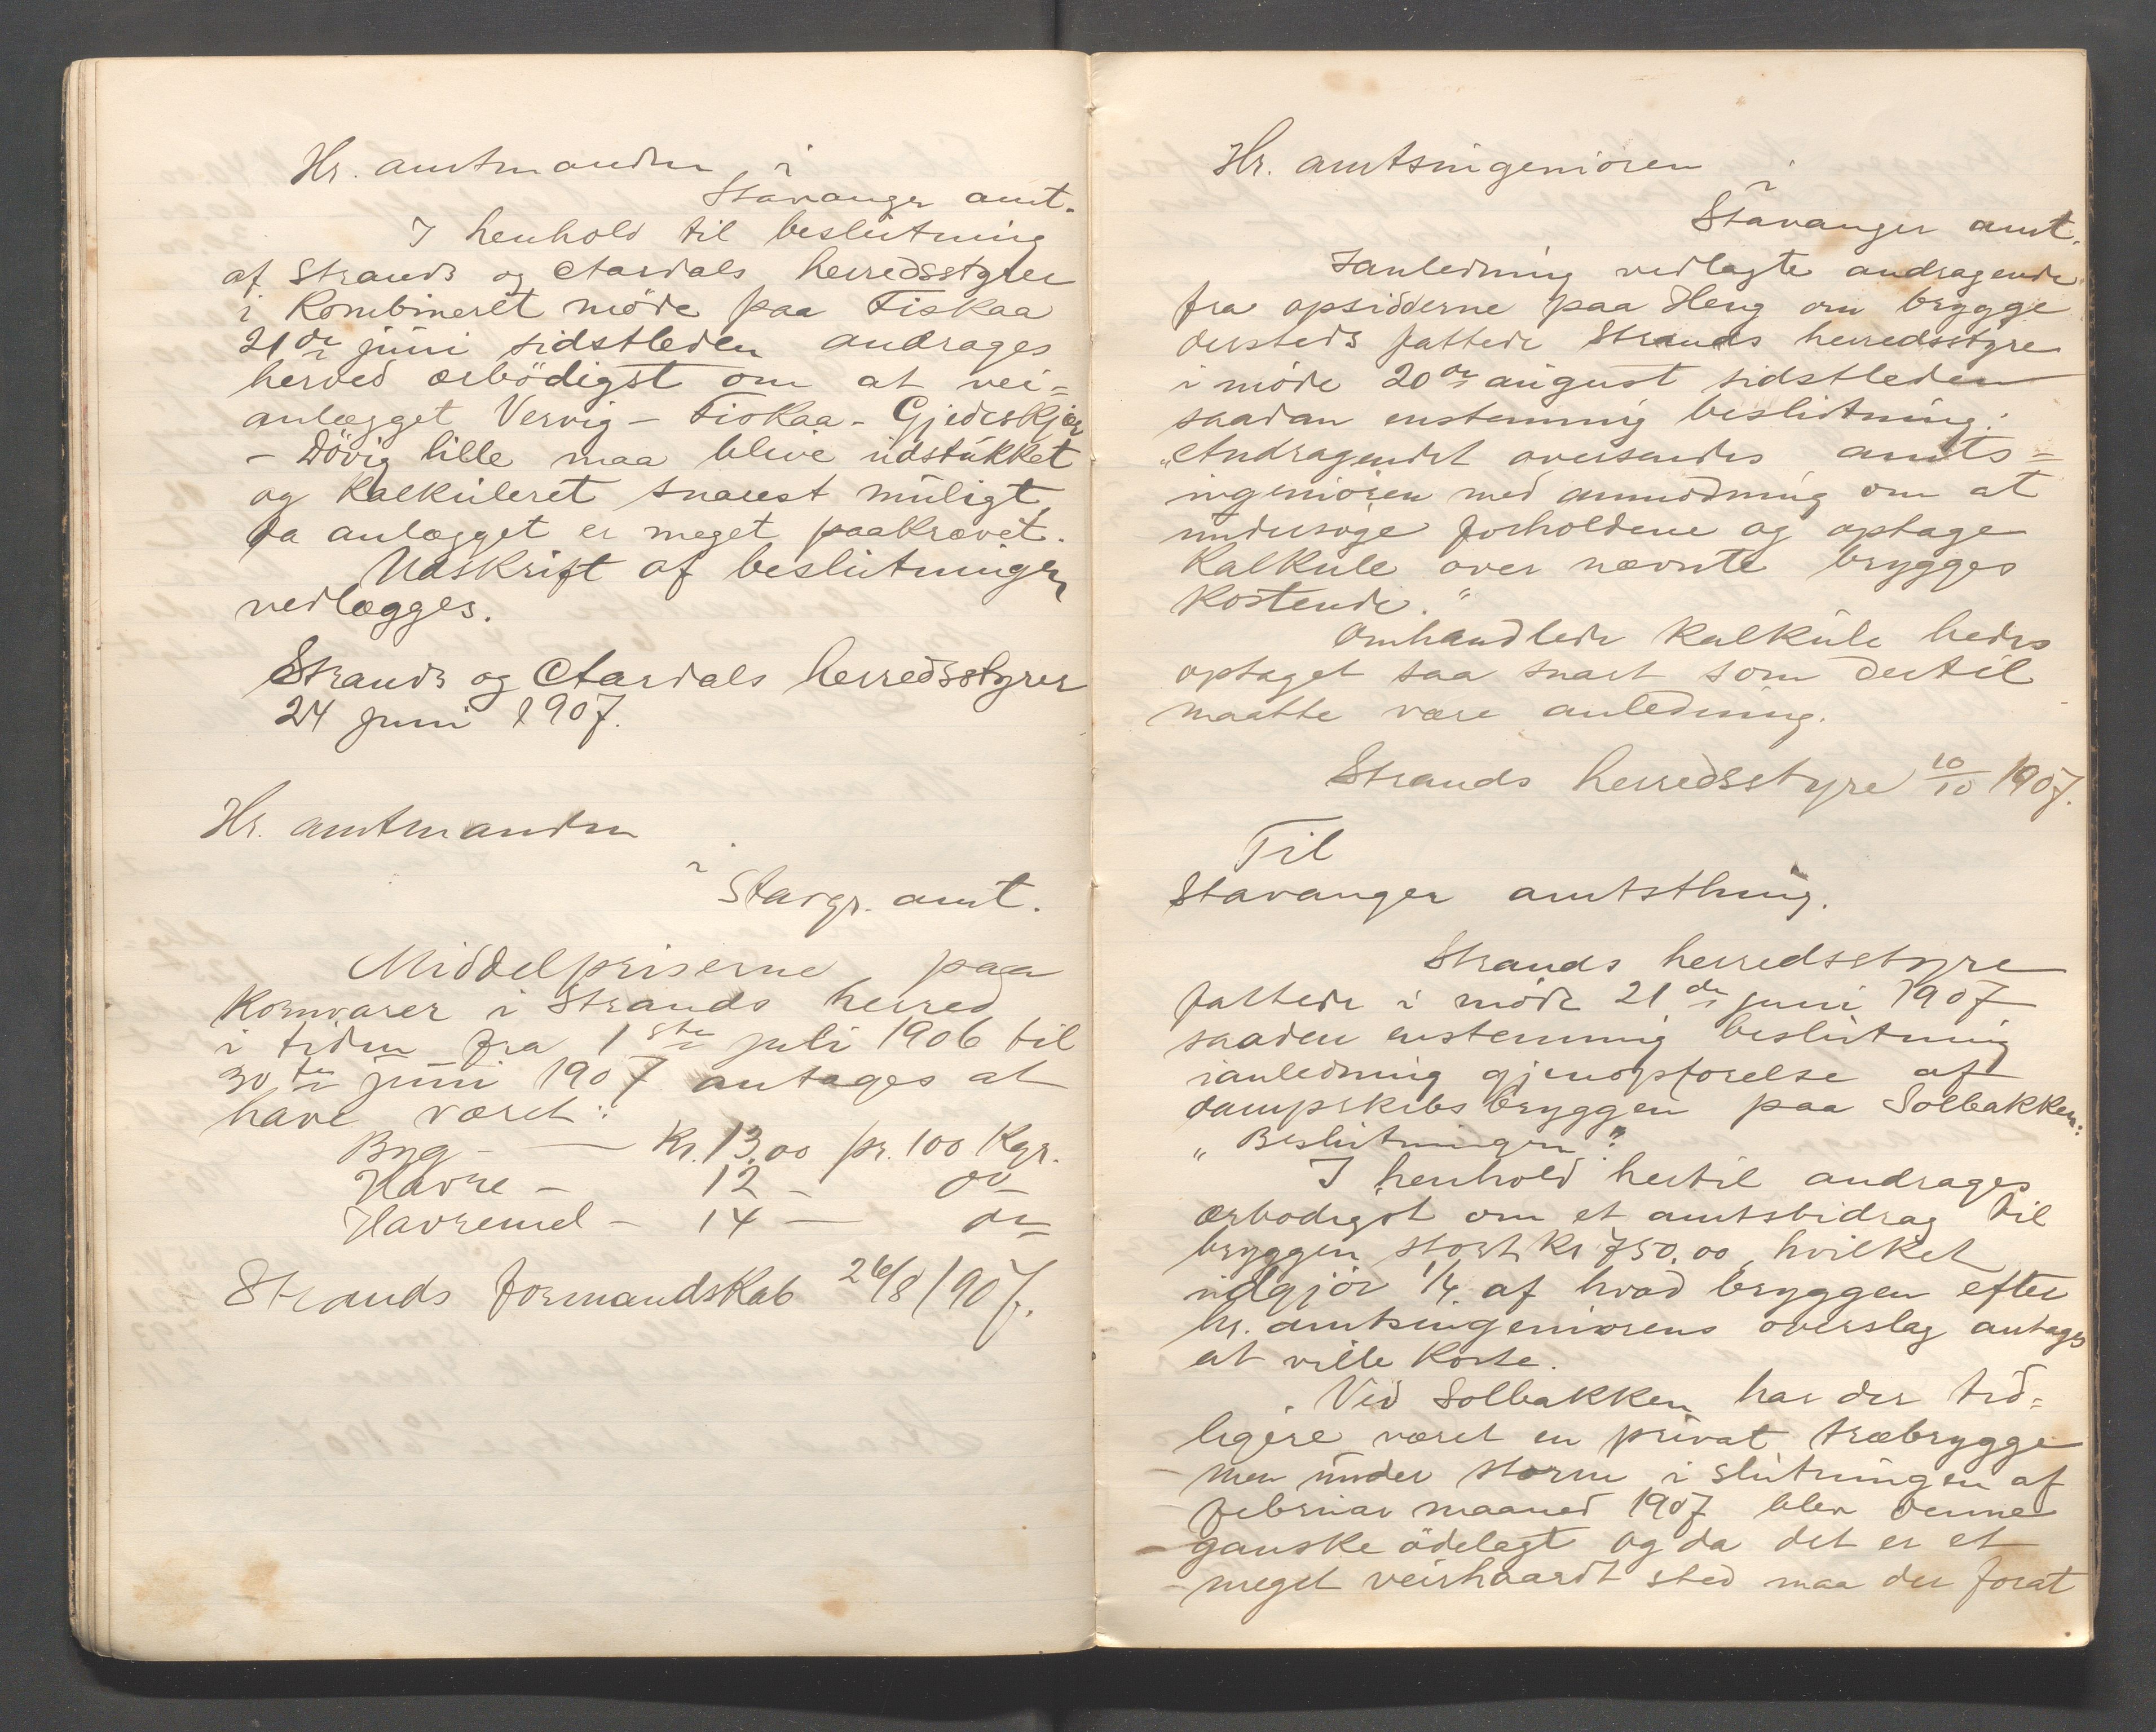 Hr. amtmanden i
Stavanger amt.
I henhold til beslutning
af Strands og Aardals herredsstyrer
i kombineret möde paa Fiskaa
21de juni sidstleden andrages
herved ærbödigst om at vei=
anlægget Vervig - Fiskaa - Gjederskjær
- Dövig lille maa blive udstukket
og kalkuleret snarest muligt,
da anlægget er meget paakrævet.
Udskrift af beslutningen
vedlægges.
Strands og Aardals herredsstyrer
24 juni 1907.
Hr. amtmanden
i
Stavgr. amt.
Middelpriserne paa
kornvarer i Strands herred
i tiden fra 1ste juli 1906 til
30te juni 1907 antages at
have været:
Byg - — Kr. 13.00 pr. 100 Kgr.
Havre - 12 - do
Havremel - 14 — do
Strands formandskab 26/8 1907.
Hr. amtsingeniören
i
Stavanger amt.
Ianledning vedlagte andragende
fra opsidderne paa Heng om brygge
dersteds fattede Strands herredsstyre
i möde 20de august sidstleden
saadan enstemmig beslutning:
„Andragendet oversendes amts=
ingeniören med anmodning om at
undersöge forholdene og optage
kalkule over nævnte brygges
kostende."
Omhandlede kalkule bedes
optaget saa snart som dertil
maatte være anledning.
Strands herredsstyre 10/10 1907.
Til
Stavanger amtsthing.
Strands herredsstyre
fattede i möde 21de juni 1907
saaden enstemmig beslutning
ianledning gjenopförelse af
dampskibsbryggen paa Solbakken:
„Beslutningen"
I henhold hertil andrages
ærbödigst om et amtsbidrag til
bryggen stort kr 750.00, hvilket
udgjör 1/4 af hvad bryggen efter
hr. amtsingeniörens overslag antages
at ville koste.
Ved Solbakken har der tid=
ligere været en privat træbrygge
men under storm i slutningen af
februar maaned 1907 blev denne
ganske ödelagt og da det er et
meget veirhaardt sted maa der forat